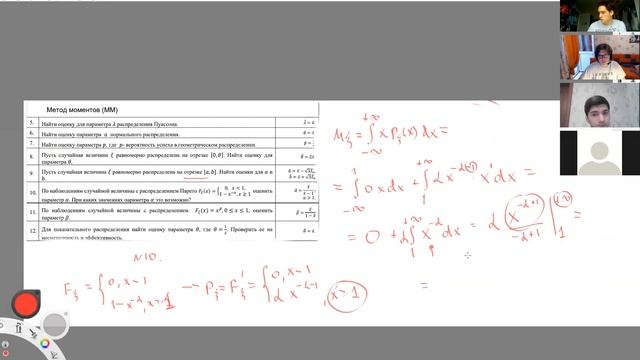 Метод моментов (ММ)
5. Найти оценку для параметра λ распределения Пуассона.
6. Найти оценку параметра a нормального распределения.
7. Найти оценку параметра p, где p- вероятность успеха в геометрическом распределении.
8. Пусть случайная величина ξ равномерно распределена на отрезке [0, θ]. Найти оценку для параметра θ.
9. Пусть случайная величина ξ равномерно распределена на отрезке [a, b]. Найти оценки для a и b.
10. По наблюдениям случайной величины с распределением Парето F_ξ(x) = {0, x < 1, 1 − x^{-α}, x ≥ 1 оценить параметр α. При каких значениях параметра α это возможно?
11. По наблюдениям случайной величины с распределением F_ξ(x) = x^β, 0 ≤ x ≤ 1, оценить параметр β.
12. Для показательного распределения найти оценку параметра θ, где
M_ξ = ∫_{-∞}^{+∞} x P_ξ(x) dx =
= ∫_{-∞}^{1} 0 x dx + ∫_{1}^{+∞} α x^{-α-1} x^1 dx =
= 0 + α ∫_{1}^{+∞} x^{-α} dx = α x^{-α+1} / -α+1 |_{1}^{+∞} =
N10.
F_ξ = {0, x<1
→ P_ξ = F'_ξ = {0, x<1
α x^{-α-1}, x>1
=